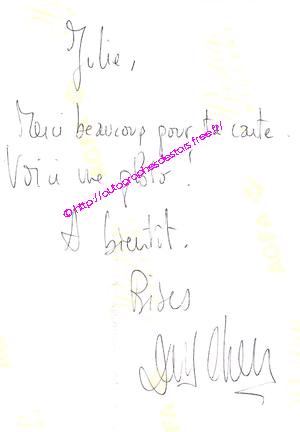 Julie,
Merci beaucoup pour ta carte.
Voici une photo !
©http://autographesdestars.free.fr/
A bientôt.
Bises